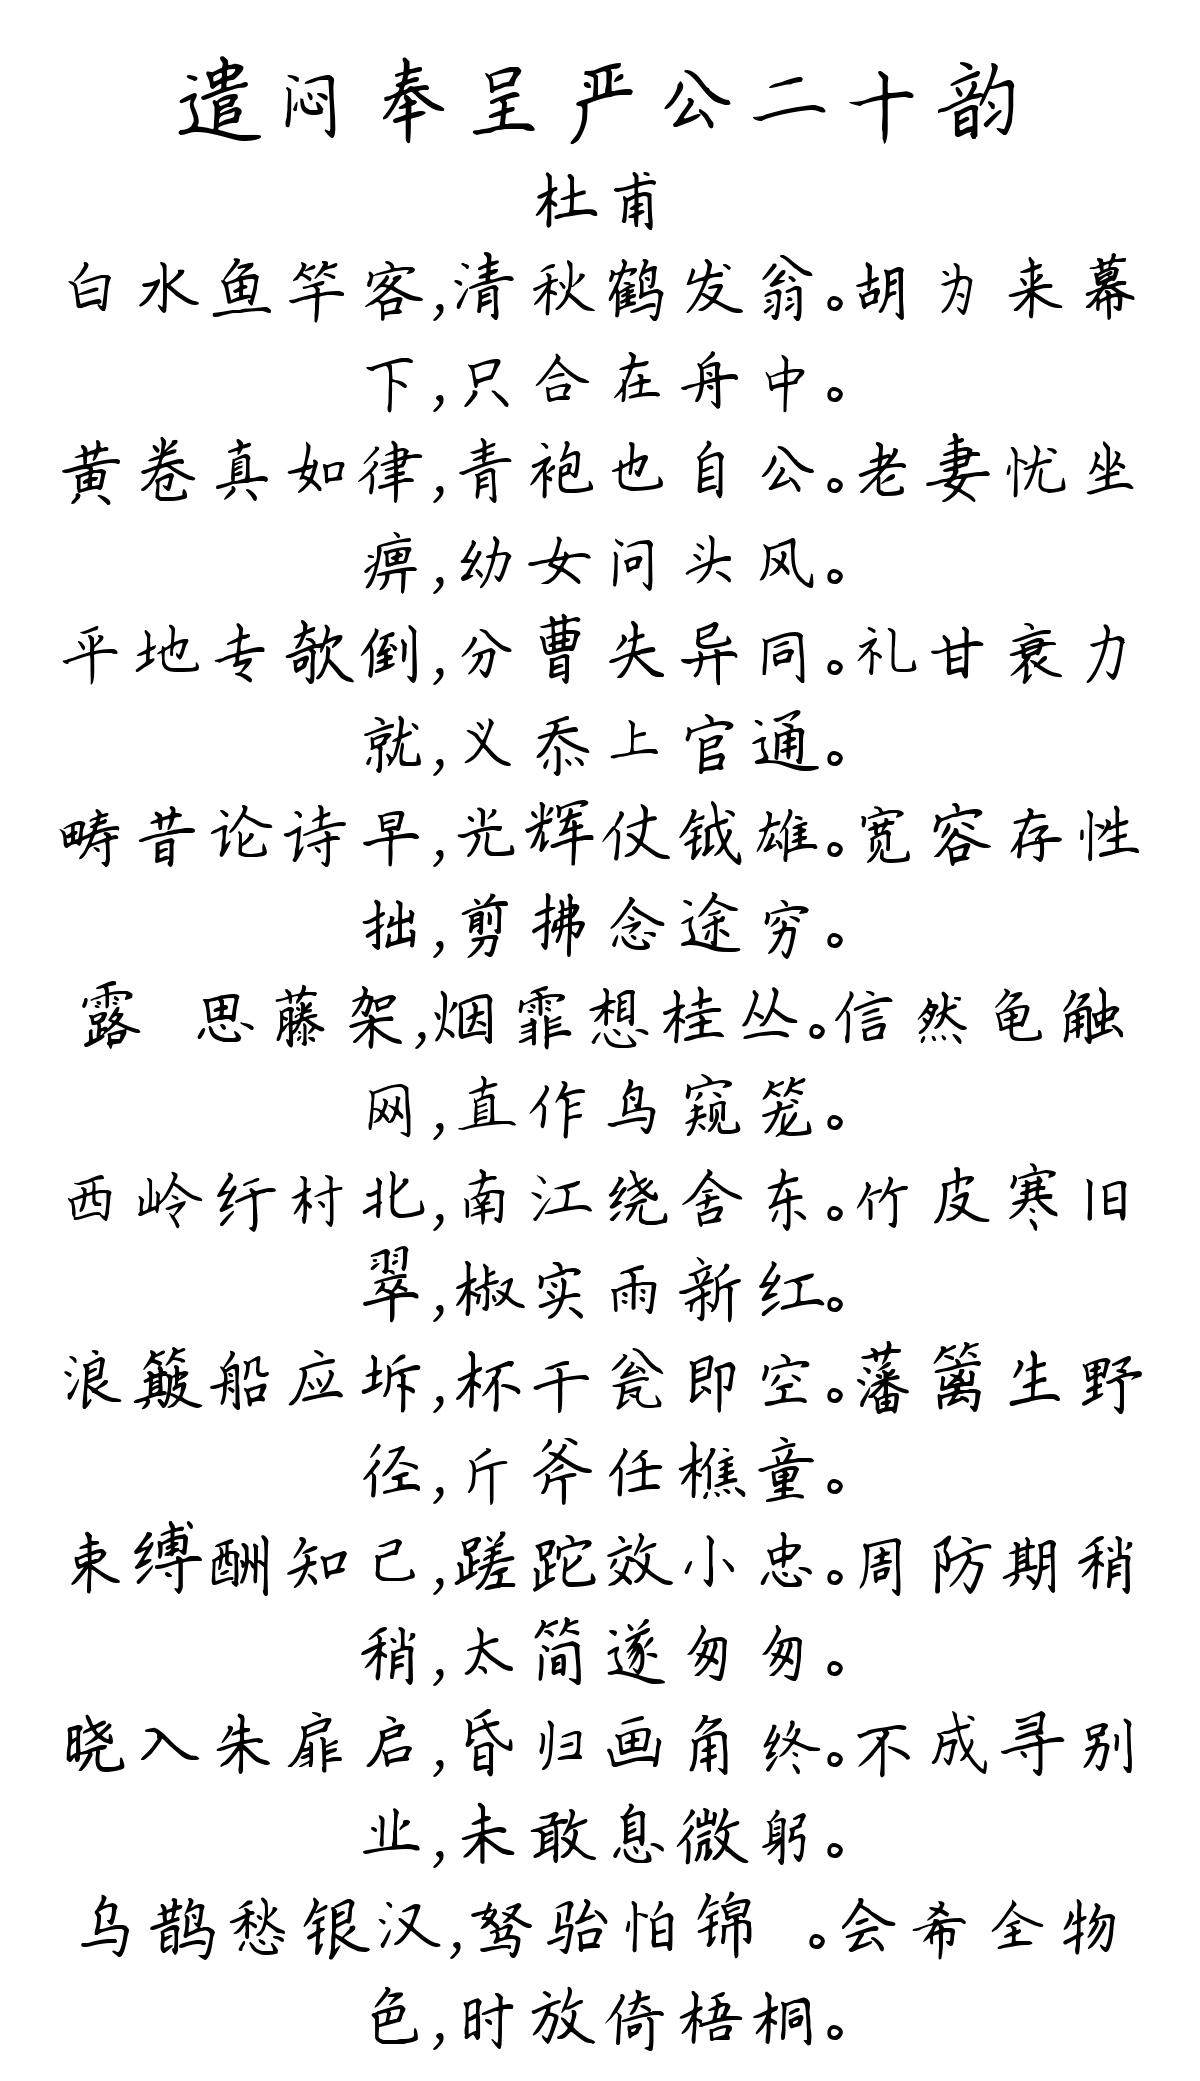 遣闷奉呈严公二十韵
杜甫
白水鱼竿客,清秋鹤发翁。胡为来幕
下,只合在舟中。
黄卷真如律,青袍也自公。老妻忧坐
痹,幼女问头风。
平地专欹倒,分曹失异同。礼甘衰力
就,义忝上官通。
畴昔论诗早,光辉仗钺雄。宽容存性
拙,剪拂念途穷。
露 思藤架,烟霏想桂丛。信然龟触
网,直作鸟窥笼。
西岭纡村北,南江绕舍东。竹皮寒旧
翠,椒实雨新红。
浪簸船应坼,杯干瓮即空。藩篱生野
径,斤斧任樵童。
束缚酬知己,蹉跎效小忠。周防期稍
稍,太简遂匆匆。
晓入朱扉启,昏归画角终。不成寻别
业,未敢息微躬。
乌鹊愁银汉,驽骀怕锦 。会希全物
色,时放倚梧桐。